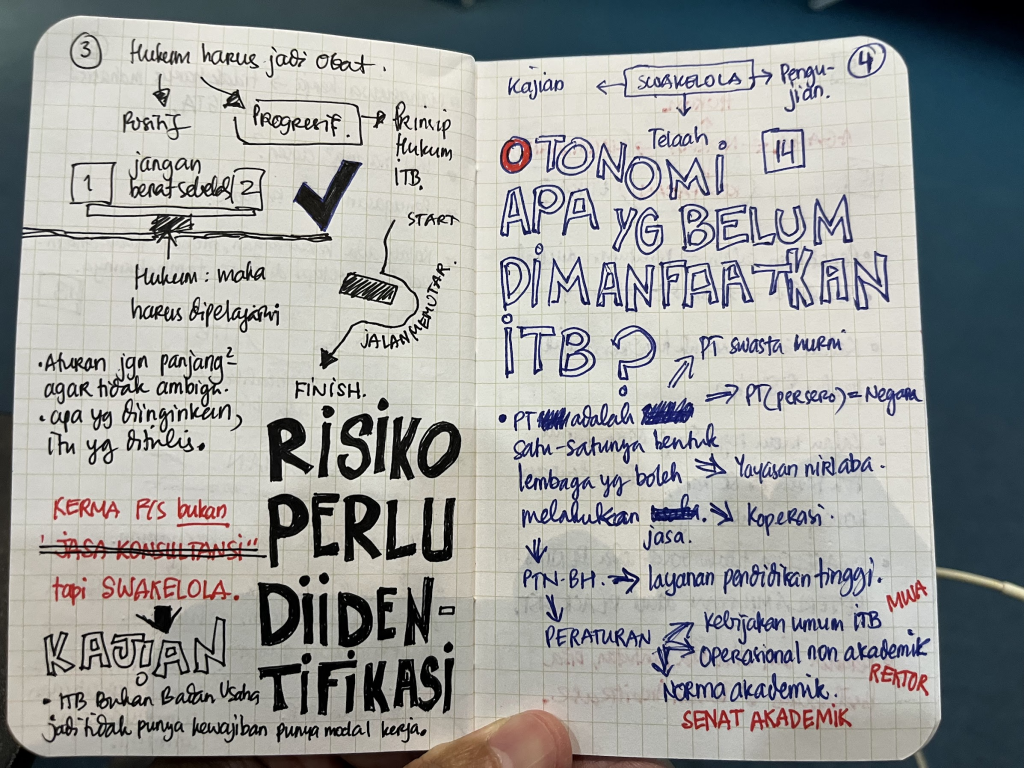 3
Hukum harus jadi obat.
Positif
PROGRESIF.
Prinsip
Hukum
ITB.
1
jangan
berat sebelah
2
START
Hukum: maha
harus dipelajari
JALAN MEMUTAR.
FINISH.
• Aturan jgn panjang²
agar tidak ambigu.
• apa yg diinginkan,
itu yg ditulis.
RISIKO
PERLU
DIIDEN-
TIFIKASI
KERMA P/S bukan
"JASA KONSULTANSI"
tapi SWAKELOLA.
KAJIAN
• ITB Bukan Badan Usaha
jadi tidak punya kewajiban punya modal kerja.
4
Kajian
SWAKELOLA
Pengu-
jian.
Telaah
14
OTONOMI
APA YG BELUM
DIMANFAATKAN
ITB?
PT swasta murni
PT (persero) = Negara
• PT adalah
satu-satunya bentuk
lembaga yg boleh
Yayasan nirlaba.
melakukan
Koperasi.
jasa.
PTN-BH.
layanan pendidikan tinggi.
MWA
PERATURAN
Kebijakan umum ITB
Operasional non akademik
REKTOR
Norma akademik.
SENAT AKADEMIK